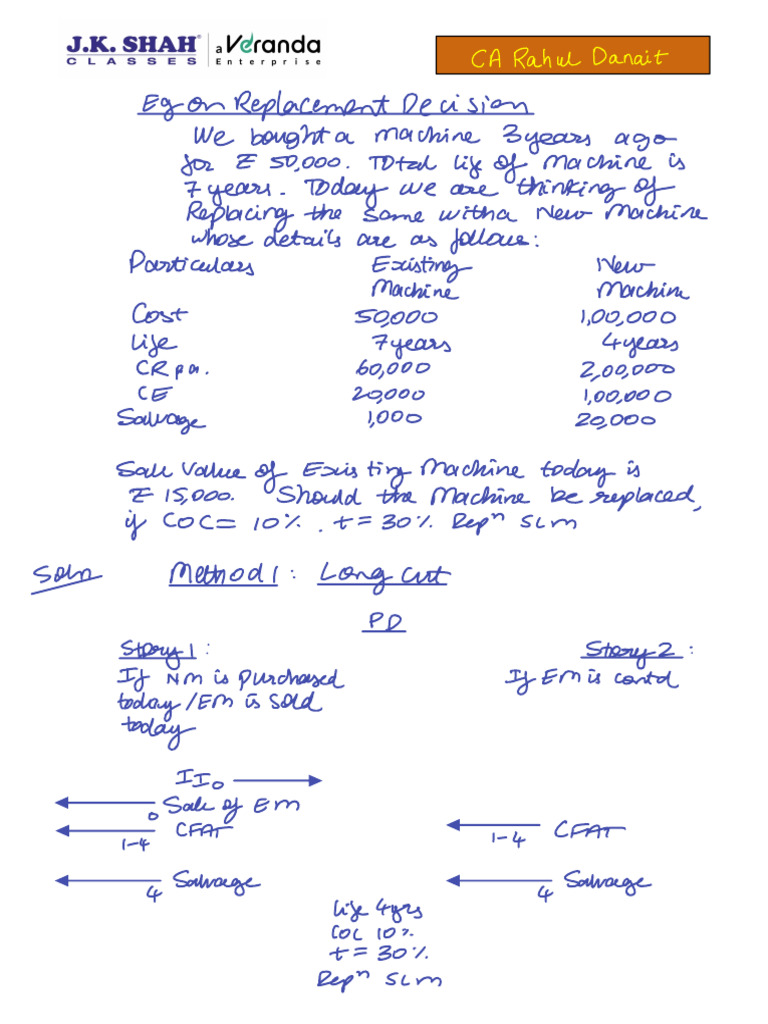 J.K. SHAH® a Veranda
CLASSES Enterprise
CA Rahul Danait
Eg on Replacement Decision
We bought a machine 3 years ago
for ₹ 50,000. Total life of Machine is
7 years. Today we are thinking of
Replacing the same with a New Machine
whose details are as follows:
Particulars Existing Machine New Machine
Cost 50,000 1,00,000
Life 7 years 4 years
CR p.a. 60,000 2,00,000
CE 20,000 1,00,000
Salvage 1,000 20,000
Sale Value of Existing Machine today is
₹ 15,000. Should the Machine be replaced,
if COC = 10%. t = 30% Repⁿ SLM
Soln Method 1: Long cut
PD
Story 1: Story 2:
If NM is purchased If EM is contd
today / EM is sold
today
II₀
0 Sale of EM
1-4 CFAT 1-4 CFAT
4 Salvage 4 Salvage
Life 4yrs
COC 10%
t = 30%
Repⁿ SLM